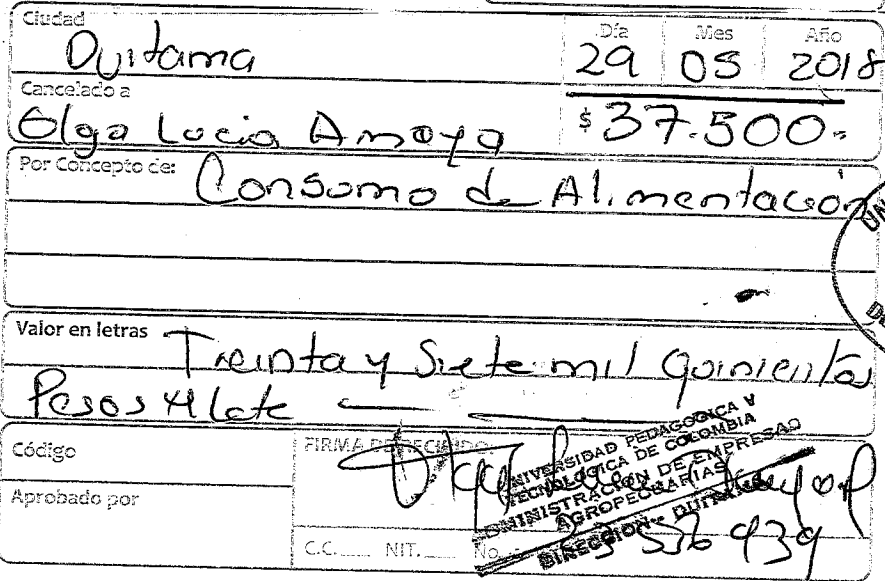 Ciudad Día Mes Año
Duitama 29 05 2018
Cancelado a
Olga Lucia Amaya $ 37.500.-
Por Concepto de:
Consumo de Alimentación
Valor en letras
Treinta y Siete mil quinientos
Pesos M/cte
Código
FIRMA DE RECIBIDO:
Aprobado por
UNIVERSIDAD PEDAGOGICA Y
TECNOLOGICA DE COLOMBIA
ADMINISTRACION DE EMPRESAS
AGROPECUARIAS
DIRECCION - DUITAMA
C.C. NIT. No. 536 939